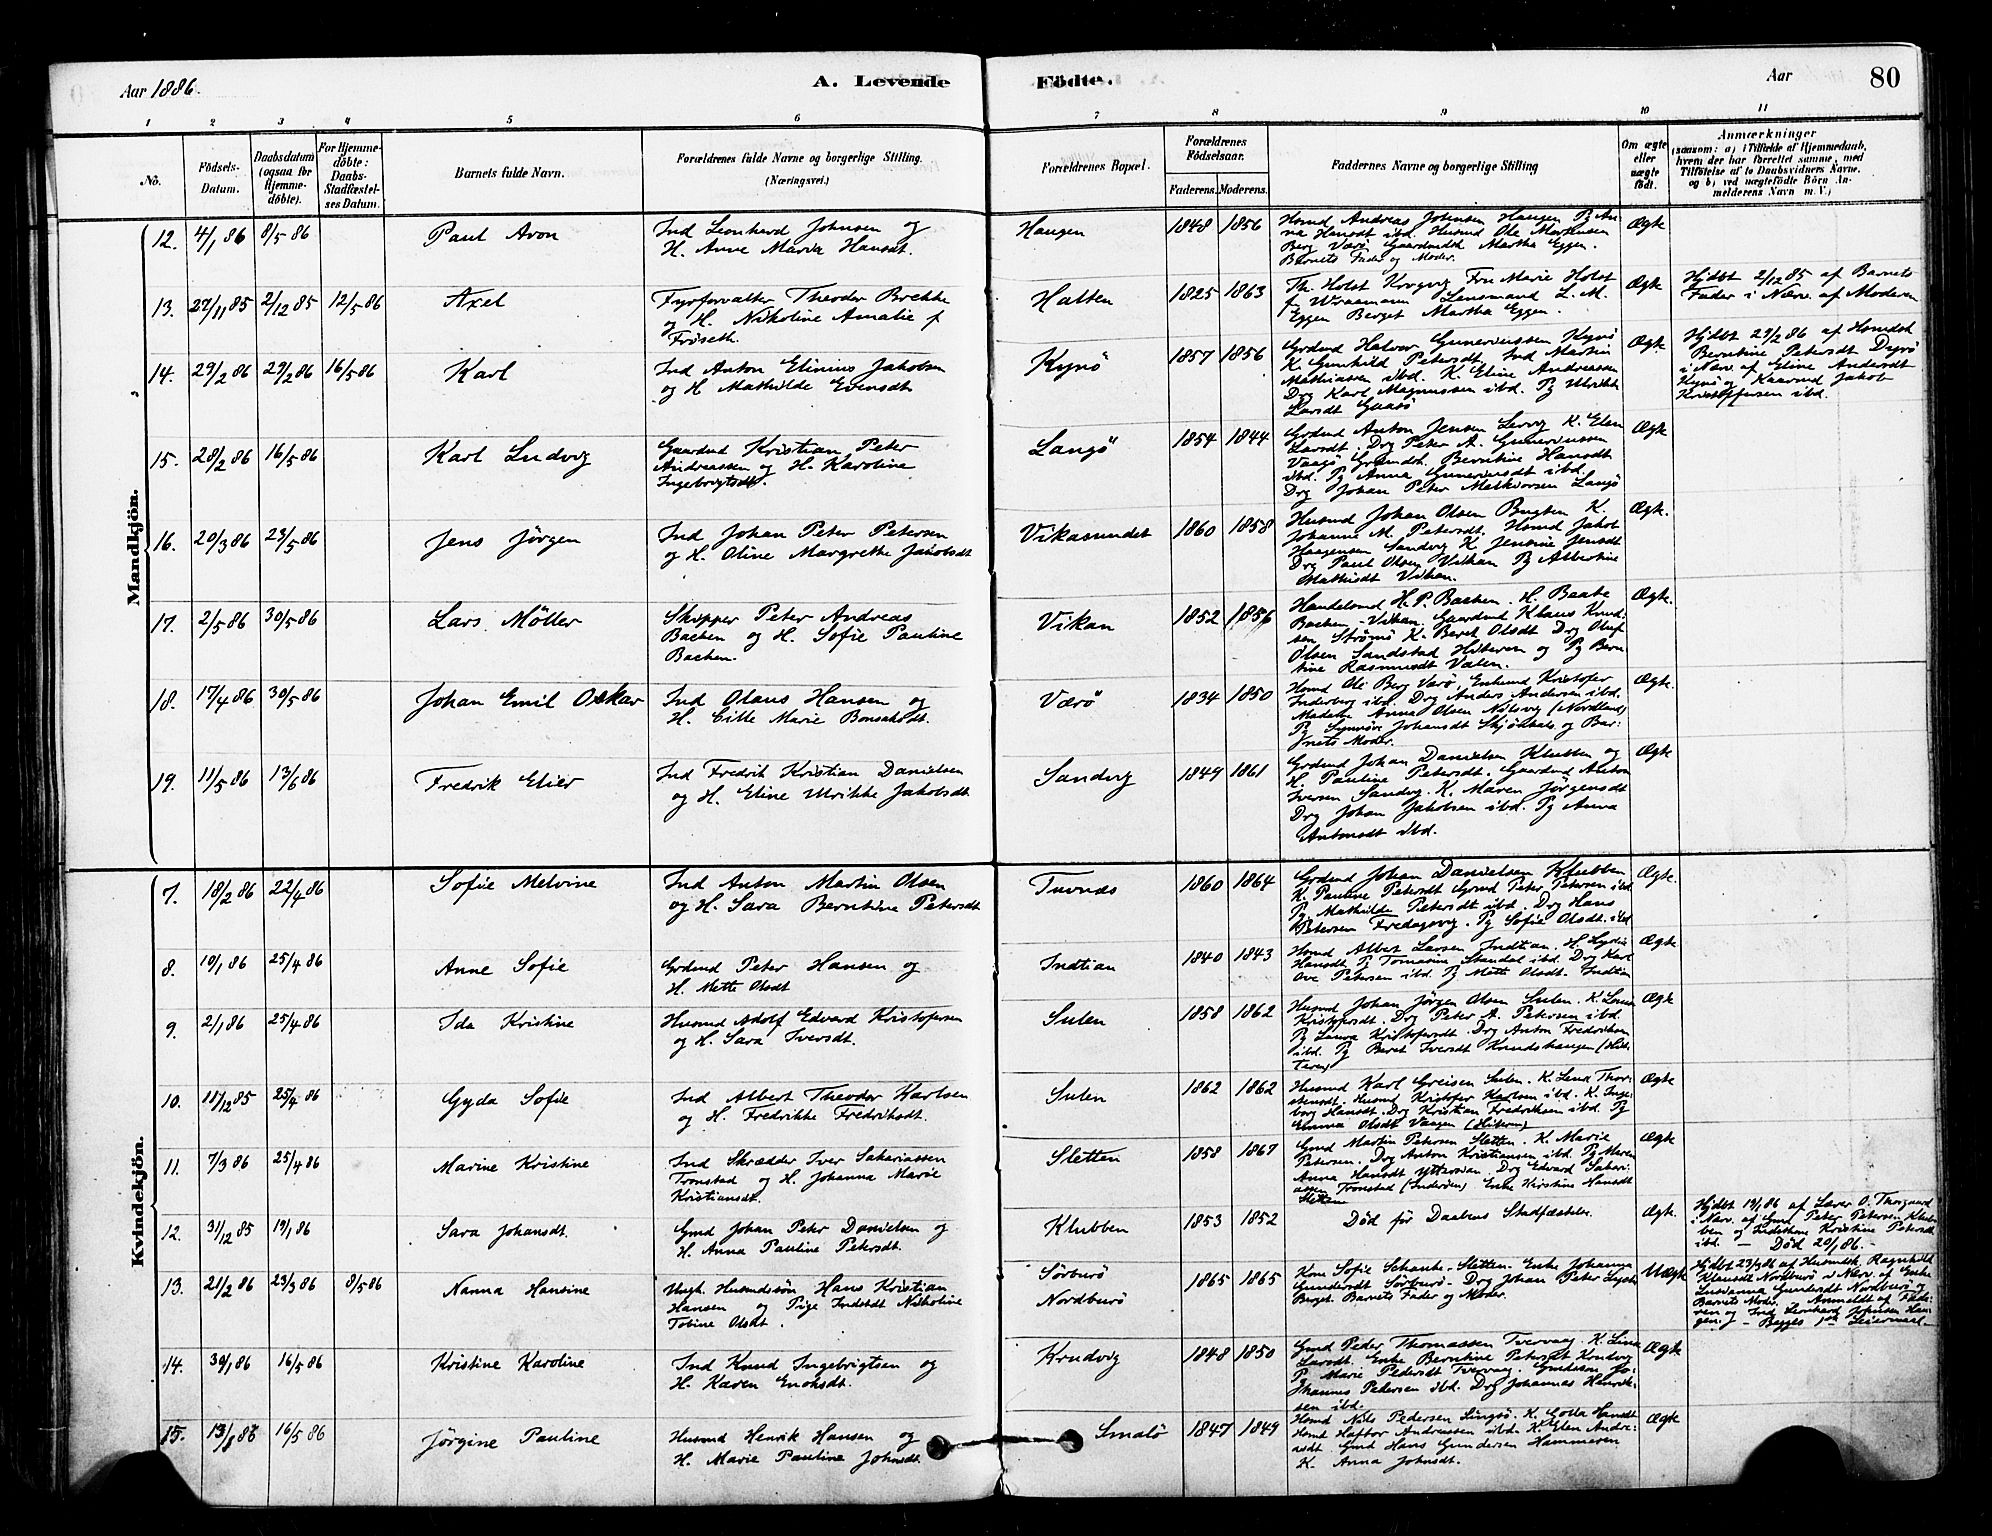 Aar 1886.
A. Levende
Födte.
Aar
80
1 2 3 4 5 6 7 8 9 10 11
No.
Födsels-Datum.
Daabsdatum (ogsaa for Hjemme-döbte).
For Hjemme-döbte: Daabs-Stadfæstel-ses Datum.
Barnets fulde Navn.
Forældrenes fulde Navne og borgerlige Stilling.
(Næringsvei.)
Forældrenes Bopæl.
Forældrenes Födselsaar.
Faderens. Moderens.
Faddernes Navne og borgerlige Stilling
Om ægte eller uægte födt.
Anmærkninger
(saasom: a) i Tilfælde af Hjemmedaab,
hvem der har forrettet samme, med
Tilföielse af to Daabsvidners Navne.
og b) ved uægtefödte Börn An-
melderens Navn m. V.)
Mandkjön.
12. 4/1 86 8/5 86 Paul Aron
Ind Leonhard Johnsen og
H. Anne Maria Hansdt.
Haugen 1848 1856
Hsmd Andreas Johnsen Haugen Pg An-
na Hansdt ibd. Husmd Ole Martinsen
Berg Værø Gaardmdt Martha Eggen.
Barnets Fader og Moder.
Ægte
13. 27/11 85 2/12 85 12/5 86 Axel
Fyrforvalter Theodor Brekke
og H. Nikoline Amalie f
Frøseth.
Halten 1825 1863
Th. Holst Krogvig Fru Marie Holst
f. Lensmand L. M.
Eggen Berget Martha Eggen.
Ægte
Hjdbt 2/12 85 af Barnets
Fader i Nærv. af Moderen
14. 29/2 86 29/2 86 16/5 86 Karl
Ind Anton Elinius Jakobsen
og H. Mathilde Evensdt
Kynø 1857 1856
Grdmd Halvor Guneriussen Kynø
K. Gunhild Petersdt. Ind Martin
Mathiassen ibd. K. Eline Andreassen
Drg Karl Magnussen ibd. Pg Ulrikke
Larsdt Gaasø
Ægte.
Hjdbt 29/2 86 af Hsmdsk
Berntine Petersdt Dyrø
i Nærv. af Eline Andersdt
Kynø og Kaarmd Jakob
Kristoffersen ibd.
15. 28/2 86 16/5 86 Karl Ludvig
Gaardmd Kristian Peter
Andreassen og H. Karoline
Ingebrigtsdt.
Langø 1854 1844
Grdmd Anton Jensen K. Elen
Larsdt. Drg Peter A. Guneriussen
Vaagø Grdmdst. Berntine Hansdt
ibd. Pg Anna Guneriusdt ibd.
Drg Johan Peter Melkiorsen Langø
Ægte
16. 20/3 86 23/5 86 Jens Jørgen
Ind Johan Peter Petersen
og H. Oline Margrethe Jakobsdt
Vikasundet 1860 1858
Husmd Johan Olsen K.
Johanne M. Petersdt. Hsmd Jakob
Haagensen Sandvig K. Jensine Jensdt
Drg Paul Olsen Vikan Pg Albertine
Mathisdt Vikan.
Ægte.
17. 2/5 86 30/5 86 Lars Möller
Skipper Peter Andreas
Bachen og H. Sofie Pauline
Bachen.
Vikan 1852 1856
Handelsmd H. P. Bachen. H. Beate
Bachen - Vikan. Gaardmd Klaus Knud-
sen Strømø K. Beret Olsdt Drg Oluf
Olsen Sandstad Hiteren og Pg Bern-
tine Rasmusdt Valen.
Ægte.
18. 17/4 86 30/5 86 Johan Emil Oskar
Ind Olaus Hansen og
H. Cille Marie Bonsaksdt.
Værø 1834 1850
Hsmd Ole Berg Værø, Enkemd Kristofer
Inderberg ibd. Drg Anders Andersen ibd.
Madam Anna Olsen (Nordland)
Pg Synnøve Johansdt og Bar-
nets Moder.
Ægte.
19. 11/5 86 13/6 86 Fredrik Elier
Ind Fredrik Kristian Danielsen
og H. Eline Ulrikke Jakobsdt
Sandvig 1849 1861
Grdmd Johan Danielsen Klubben og
H. Pauline Petersdt. Gaardmd Anton
Iversen Sandvig. K. Maren Jørgensdt
Drg Johan Jakobsen ibd. Pg Anna
Antonsdt ibd.
Ægte
Kvindekjön.
7. 18/2 86 22/4 86 Sofie Melvine
Ind Anton Martin Olsen
og H. Sara Berntine Petersdt
Tuvnæs 1860 1864
Grdmd Johan Danielsen Klubben
K. Pauline Petersdt Grmd Peter Petersen ibd
Pg Mathilde Petersdt ibd. Drg Hans
Petersen Fredagsvig. Pg Sofie Olsdt. ibd
Ægte.
8. 19/1 86 25/4 86 Anne Sofie
Grdmd Peter Hansen og
H. Mette Olsdt
Indtian 1840 1843
Hsmd Albert Larsen Indtian. H. Lydia
Hansdt Pg Tomasine Skandal ibd. Drg Karl
Ove Petersen ibd. Pg Mette Olsdt. Indtian
Ægte
9. 2/1 86 25/4 86 Ida Kristine
Husmd Adolf Edvard Kristofersen
og H. Sara Iversdt.
Sulen 1858 1862
Husmd Johan Jörgen Olsen Sulen. K. Lovise
Kristofersdt. Drg Peter A. Petersen ibd.
Pg Laura Kristofersdt. Drg Anton Fredriksen
ibd. Pg Beret Iversdt Knudshaugen (Hit-
teren)
Ægte
10. 11/12 85 25/4 86 Gyda Sofie
Ind Albert Theodor Karlsen
og H. Fredrikke Fredriksdt.
Sulen 1862 1862
Husmd Karl Greisen Sulen. K. Lena Thor-
stensdt. Husmd Kristofer Karlsen ibd. K. Inge-
borg Hansdt. Drg Kristian Fredriksen ibd. Pg
Emma Olsdt Vaagen (Hiteren)
Ægte
11. 7/3 86 25/4 86 Marine Kristine
Ind Skrædder Iver Sakariassen
Tronstad og H. Johanna Marie
Kristiansdt.
Sletten 1858 1867
Gmd Martin Petersen Sletten. K. Marie
Petersen. Drg Anton Kristiansen ibd. Pg Maren
Anna Hansdt Ytterøian. Drg Edvard Sakari-
assen Tronstad (Inderøen) Enke Kirstine Hansdt
Sletten
Ægte
12. 31/12 85 19/1 86 Sara Johansdt.
Gmd Johan Peter Danielsen og
H. Anna Pauline Petersdt.
Klubben 1853 1852
Død før Daabens Stadfæstelse.
Ægte.
Hjdbt 19/1 86 af Lærer O. Thorgaard
i Nærv. af Gmd Peter Petersen Klub-
ben og Kristine Petersdt
ibd. - Död 20/1 86. -
13. 21/2 86 23/3 86 8/5 86 Nanna Hansine
Ungk. Husmdssön Hans Kristian
Hansen og Pige Indstdt Nikoline
Tobine Olsdt.
Sörburø
Nordburø 1865 1865
Kone Sofie Schanke Sletten. Enke Johanna
Gundersdt Sörburø. Drg Johan Peter
Berget. Barnets Fader og Moder.
Uægte
Hjdbt 23/3 86 af Husmdsk. Ragnhild
Klausdt Nordburø i Nærv. af Enke
Susanna Gundersdt Nordburø og
Barnets Moder. Anmeldt af Fade-
ren og Ind Leonhard Johnsen Hau-
gen. - Begges 1ste Leiermaal
14. 30/1 86 16/5 86 Kristine Karoline
Ind Knud Ingebrigtsen og
H. Karen Enoksdt.
Knudvig 1848 1850
Gmd Peder Thomassen Tvervaag. K. Lina
Larsdt. Enke Berntine Petersdt Knudvig
P. Marie Pedersdt Tvervaag. Gmdssøn Jo-
hannes Pedersen ibd. Drg Johannes Henrik-
sen ibd.
Ægte
15. 13/1 86 16/5 86 Jörgine Pauline
Husmd Henrik Hansen og
H. Marie Pauline Johnsdt.
Smalø 1847 1849
Hsmd Nils Pedersen Singsø. K. Golla Hansdt
Hsmd Haftor Andreassen ibd. K. Elen Andre-
asdt. Gmd Hans Gundersen Hammeren
K. Anna Johnsdt.
Ægte